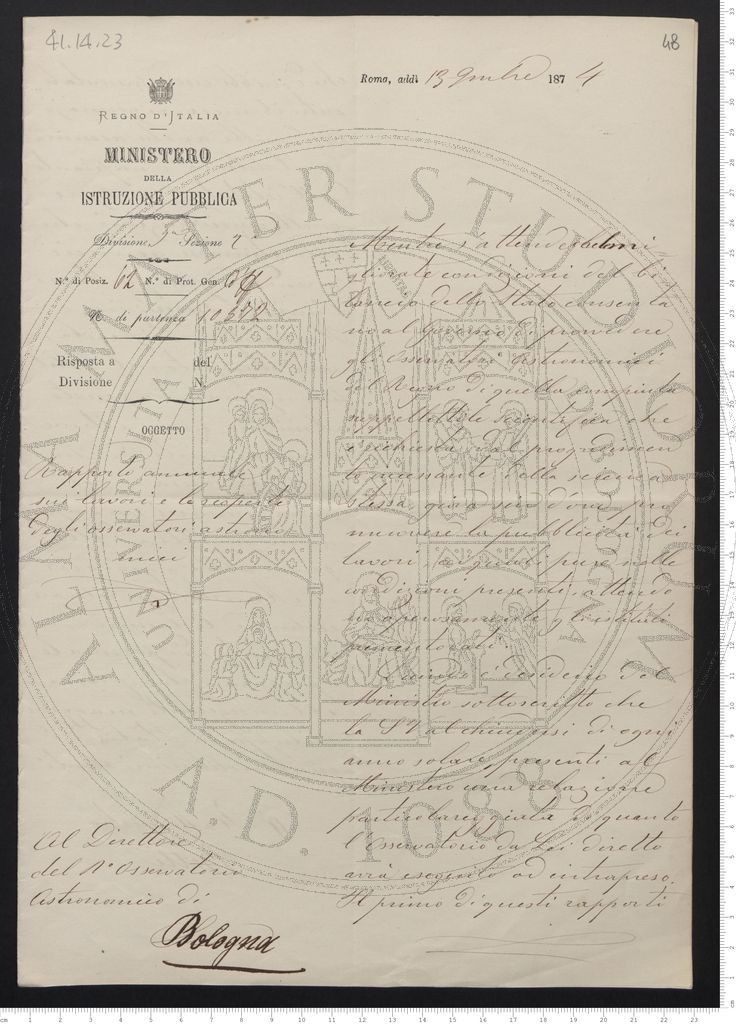 41.14.23
48
Roma, addì 13 9mbre 1874
REGNO D'ITALIA
MINISTERO
DELLA
ISTRUZIONE PUBBLICA
Divisione Sezione 2
N.º di Posiz. 62 N.º di Prot. Gen.
Nº di partenza 10572
Risposta a del
Divisione N.
OGGETTO
Rapporto annuale
sui lavori e le
degli osservatori astrono
mici
Al Direttore
del Rº Osservatorio
Astronomico di
Bologna
Mentre s'attende che mi
gliorate condizioni del bi
lancio dello Stato consenta
no al Governo di provvedere
gli Osservatori Astronomici
del Regno di quella compiuta
suppellettile scientifica che
è richiesta dal progredimen
to incessante della scienza
stessa, giova senza dubbio pro
muovere la pubblicità dei
lavori, ai quali pure nelle
condizioni presenti, attendo
no operosamente gl'istituti
Quindi è desiderio del
Ministro sottoscritto che
la S.V. al chiudersi di ogni
anno solare, presenti al
Ministero una relazione
particolareggiata di quanto
l'Osservatorio da Lei diretto
avrà eseguito od intrapreso.
Il primo di questi rapporti
ALMA MATER STUDIORUM
UNIVERSITÀ
A.D. 1088